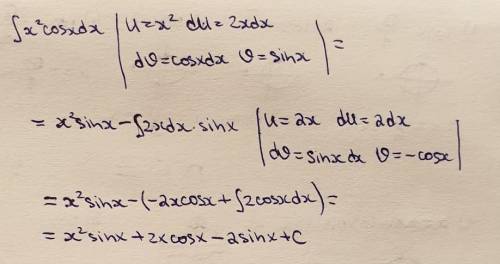 ∫x²cosxdx | u=x² du=2xdx
dv=cosxdx v=sinx | =
= x²sinx-∫2xdx·sinx | u=2x du=2dx
dv=sinxdx v=-cosx |
= x²sinx-(-2xcosx+∫2cosxdx)=
= x²sinx+2xcosx-2sinx+C